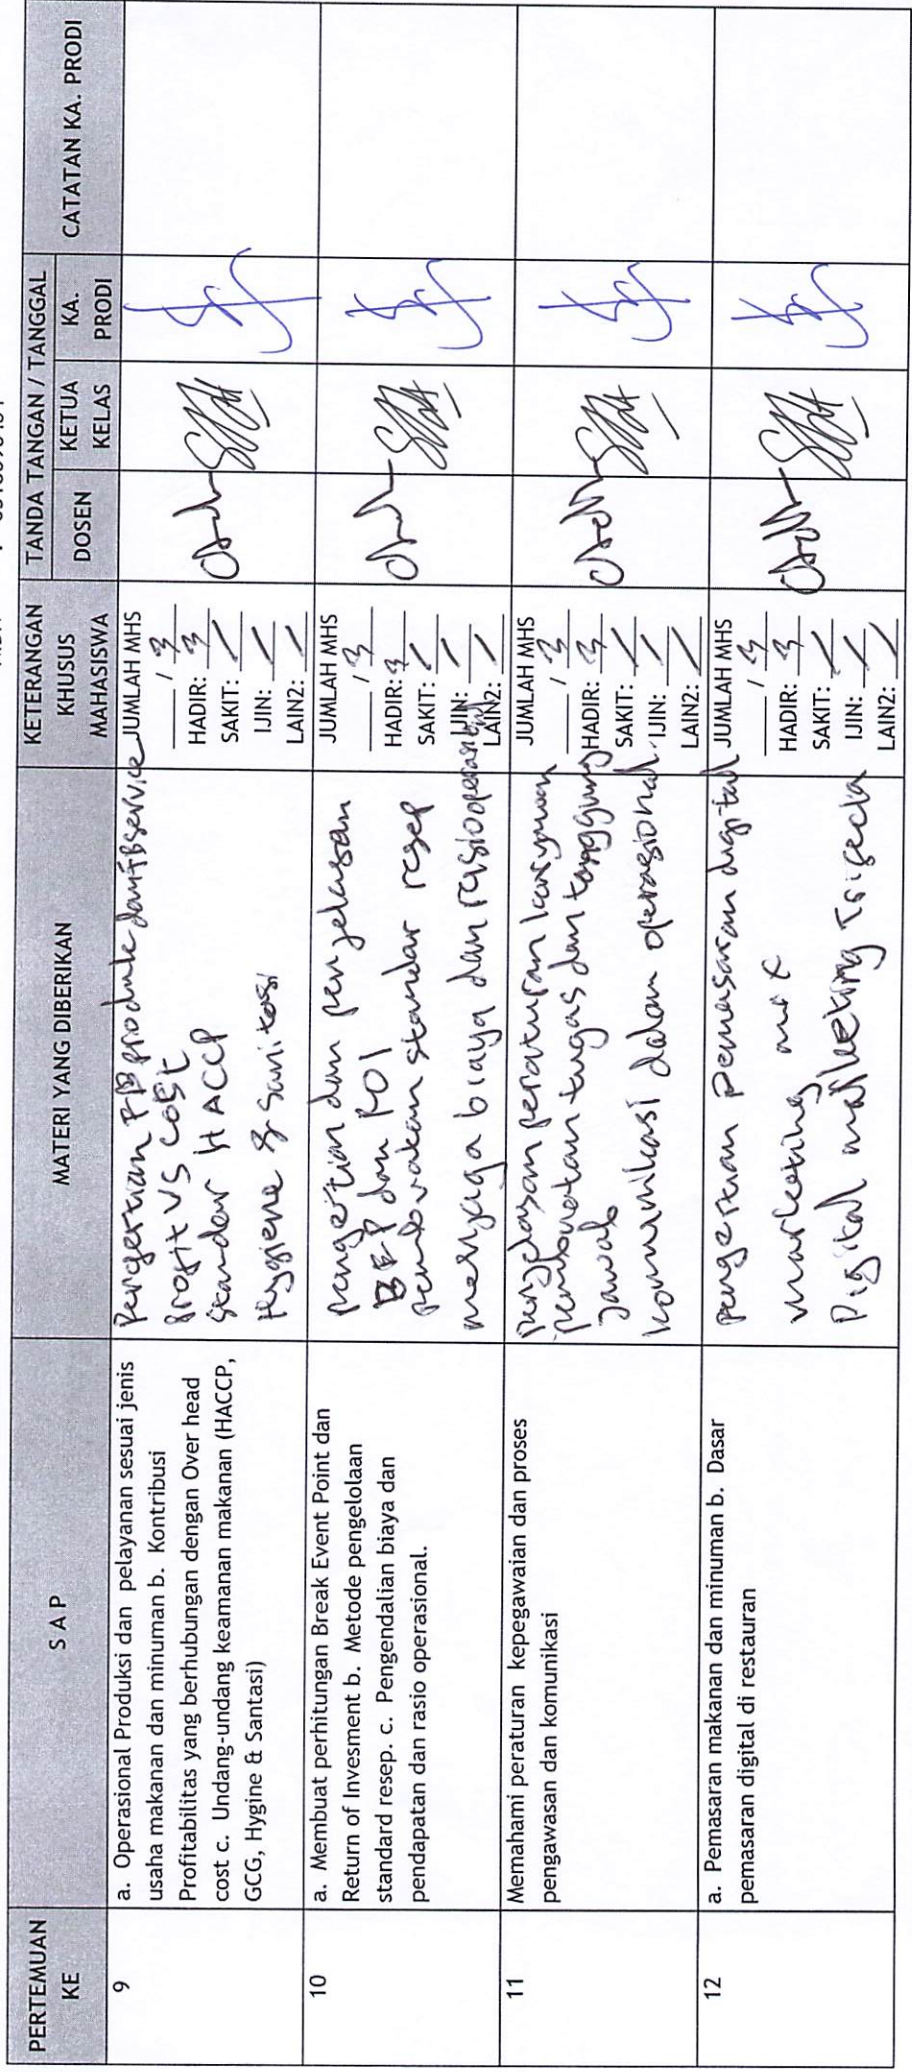 PERTEMUAN KE
S A P
MATERI YANG DIBERIKAN
KETERANGAN KHUSUS MAHASISWA
TANDA TANGAN / TANGGAL
DOSEN
KETUA KELAS
KA. PRODI
CATATAN KA. PRODI
9
a. Operasional Produksi dan pelayanan sesuai jenis
usaha makanan dan minuman b. Kontribusi
Profitabilitas yang berhubungan dengan Over head
cost c. Undang-undang keamanan makanan (HACCP,
GCG, Hygine & Santasi)
Pengertian FB produk dan FB service
Profit VS Cost
Standar HACCP
Hygiene & Sanitasi
JUMLAH MHS
/ 3
HADIR: 3
SAKIT: /
IJIN: /
LAIN2: /
10
a. Membuat perhitungan Break Event Point dan
Return of Invesment b. Metode pengelolaan
standard resep. c. Pengendalian biaya dan
pendapatan dan rasio operasional.
pengertian dan penjelasan
BEP dan ROI
standar resep
menjaga biaya dan rasio operasional
JUMLAH MHS
/ 3
HADIR: 3
SAKIT: /
IJIN: /
LAIN2: /
11
Memahami peraturan kepegawaian dan proses
pengawasan dan komunikasi
Penjelasan peraturan karyawan
pembuatan tugas dan tanggung
jawab
komunikasi dalam operasional
JUMLAH MHS
/ 3
HADIR: 3
SAKIT: /
IJIN: /
LAIN2: /
12
a. Pemasaran makanan dan minuman b. Dasar
pemasaran digital di restauran
pengertian pemasaran digital
marketing mix
Digital marketing
JUMLAH MHS
/ 3
HADIR: 3
SAKIT: /
IJIN: /
LAIN2: /